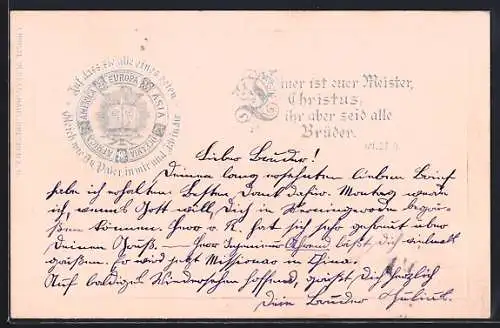 Auf dass sie alle eines seien
gleich wie du Vater in mir und ich in dir
AMERICA EUROPA ASIA OCEANIA AFRICA
Einer ist euer Meister,
Christus;
ihr aber seid alle
Brüder.
Lieber Bruder!
Deinen lang ersehnten lieben Brief
habe ich erhalten. Besten Dank dafür. Montag werde
ich, wenns Gott will, Dich in Wernigerode begrü-
ßen können. Herr v. R. hat sich sehr gefreut über
Deinen Gruß. — Herr Ingenieur läßt Dich vielmals
grüßen. Er wird jetzt Missionar in China.
Auf baldiges Wiedersehen hoffend, grüßt Dich herzlich
Dein Bruder Julius.